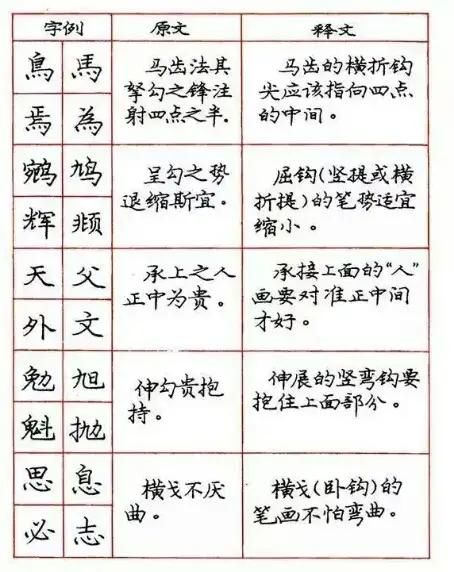 字例 原文 释文
鳥 馬
焉 為
马齿法具
拏勾之锋注
射四点之半.
马齿的横折钩
尖应该指向四点
的中间。
鹓 鸠
辉 𫖯
呈勾之势
退缩斯宜。
屈钩(竖提或横
折提)的笔势适宜
缩小。
天 父
外 文
承上之人
正中为贵。
承接上面的“人”
画要对准正中间
才好。
勉 旭
魁 抛
伸勾贵抱
持。
伸展的竖弯钩要
抱住上面部分。
思 息
必 志
横戈不厌
曲。
横戈(卧钩)的
笔画不怕弯曲。